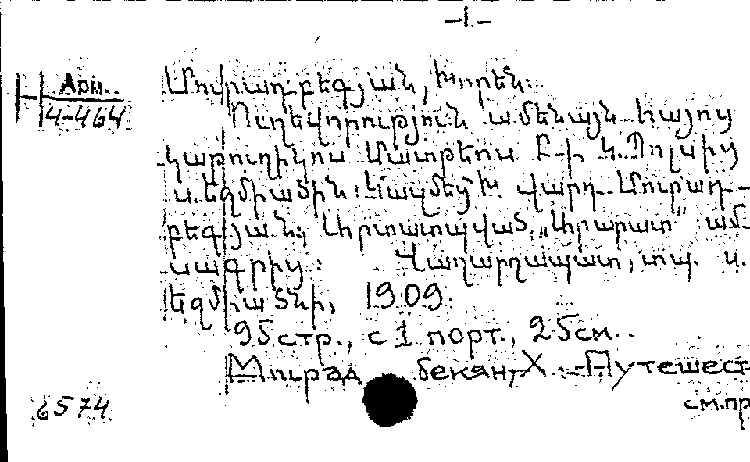 -1-
Арм.
4-464
Մուրադբեգյան, Խորեն.
Ուղեվորություն ամենայն հայոց
կաթողիկոս Մատթեոս Բ-ի Կ.Պոլսից
ս. Էջմիածին: Կազմեց Խ. վարդ. Մուրադ-
բեգյան: Արտատպված „Արարատ" ամ-
սագրից: Վաղարշապատ, տպ. ս.
Էջմիածնի, 1909.
95 стр., с 1 порт., 25 см.
Мурад бекян, Х. Путешест
6574
см.пр